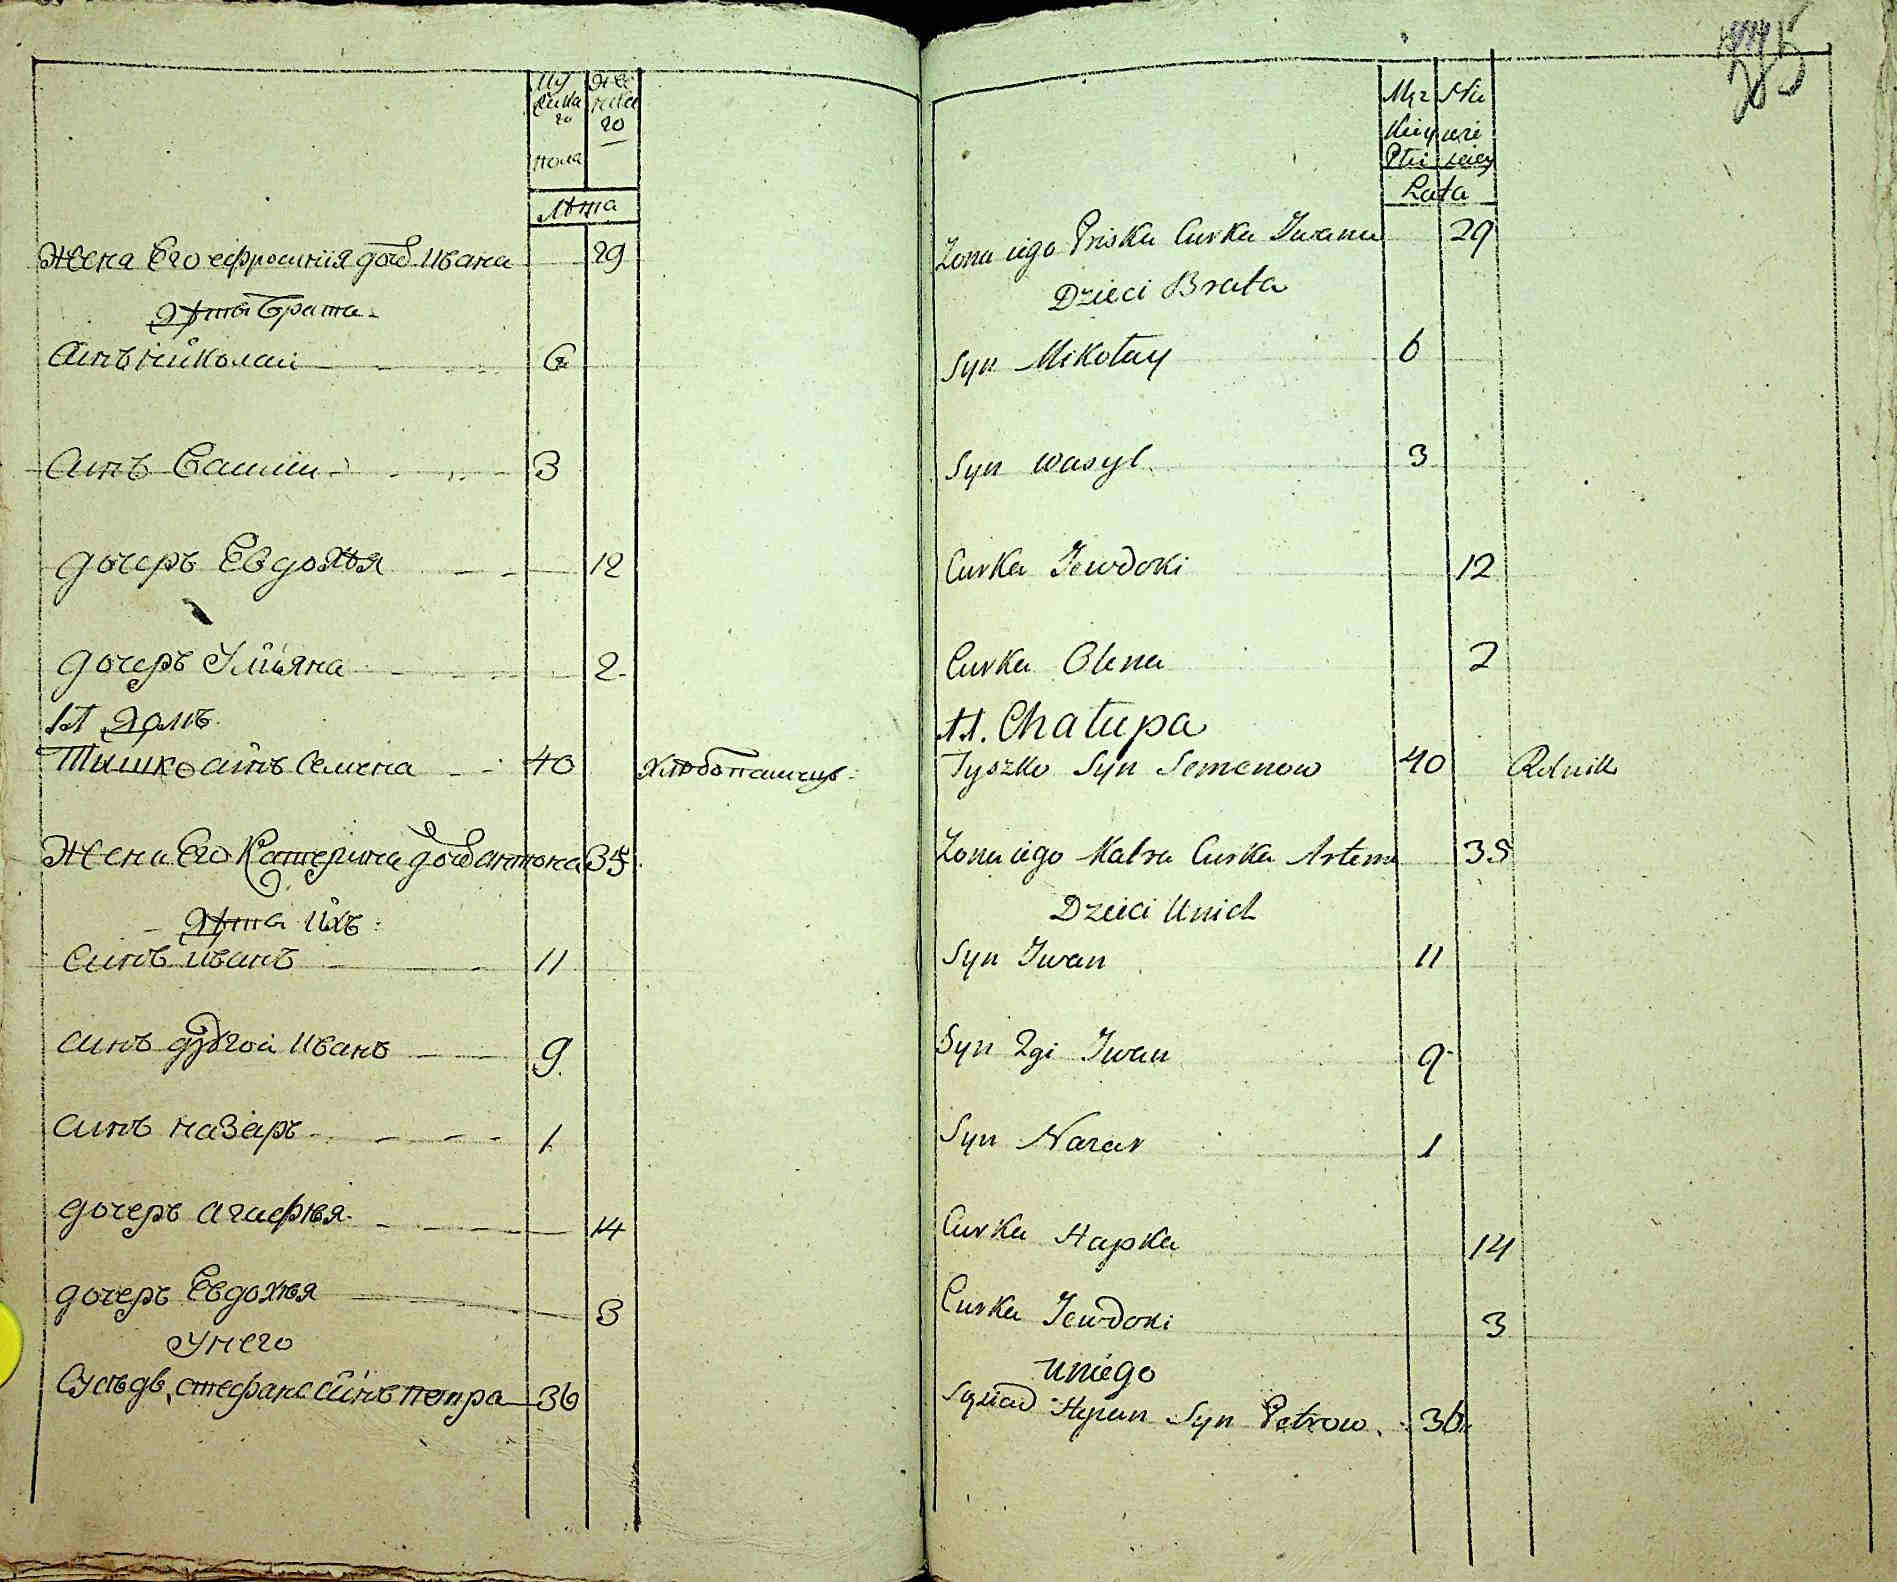 Му Же
жеска нска
го го
пола
Лѣта
жена Его ефросинїя дочь Ивана 29
Дѣти брата
Синъ николаи 6
Синъ Василии 3
дочеръ Евдохъя 12
дочеръ Улияна 2
11 Домъ
Тишко синъ Семена 40 хлѣбопашецъ
жена Его Катерина дочь антона 35
Дѣти ихъ
Синъ иванъ 11
Синъ другой иванъ 9
Синъ назаръ 1
дочеръ агафѣя 14
дочеръ Евдохѣя 3
У него
Сусѣдъ стефанъ синъ петра 36
285
Męz Nie
kiey wie
Płci sciey
Lata
Zona iego Priska Curka Iwana 29
Dzieci Brata
Syn Mikołay 6
Syn wasyl 3
Curka Jewdoki 12
Curka Olena 2
11. Chałupa
Tyszko Syn Semenow 40 Rolnik
Zona iego Katra Curka Artema 35
Dzieci Unich
Syn Iwan 11
Syn 2gi Iwan 9
Syn Nazar 1
Curka Hapka 14
Curka Jewdoki 3
Uniego
Sąsiad Stepan Syn Petrow 36